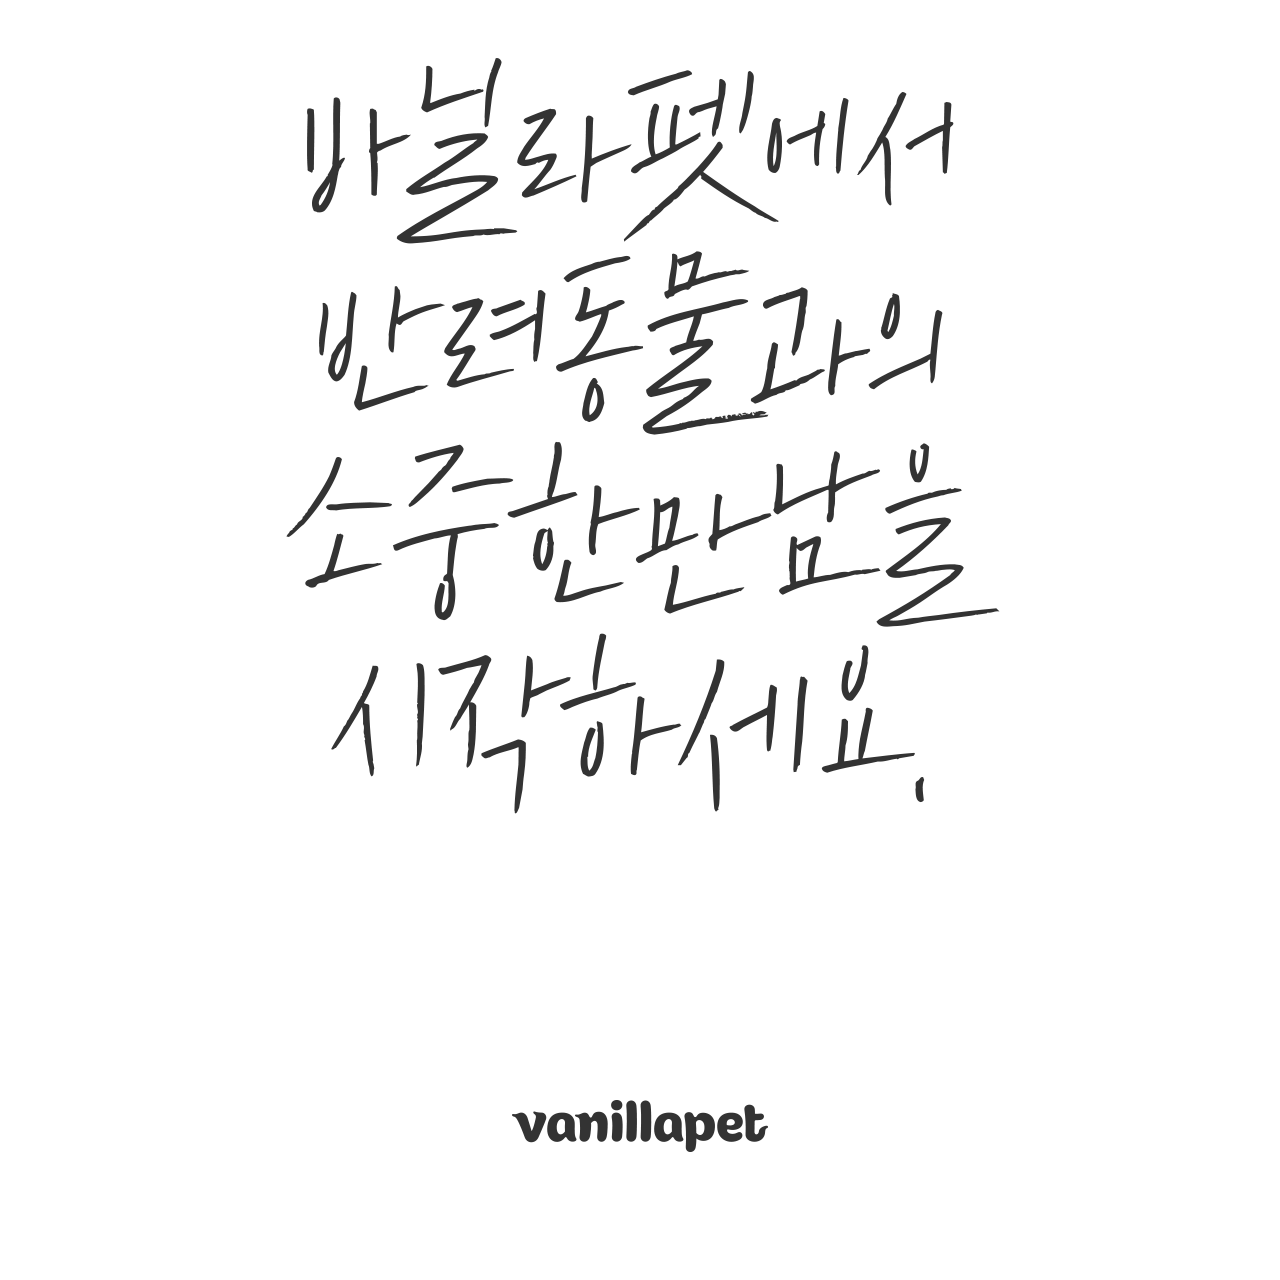 바닐라펫에서
반려동물과의
소중한만남을
시작하세요.
vanillapet